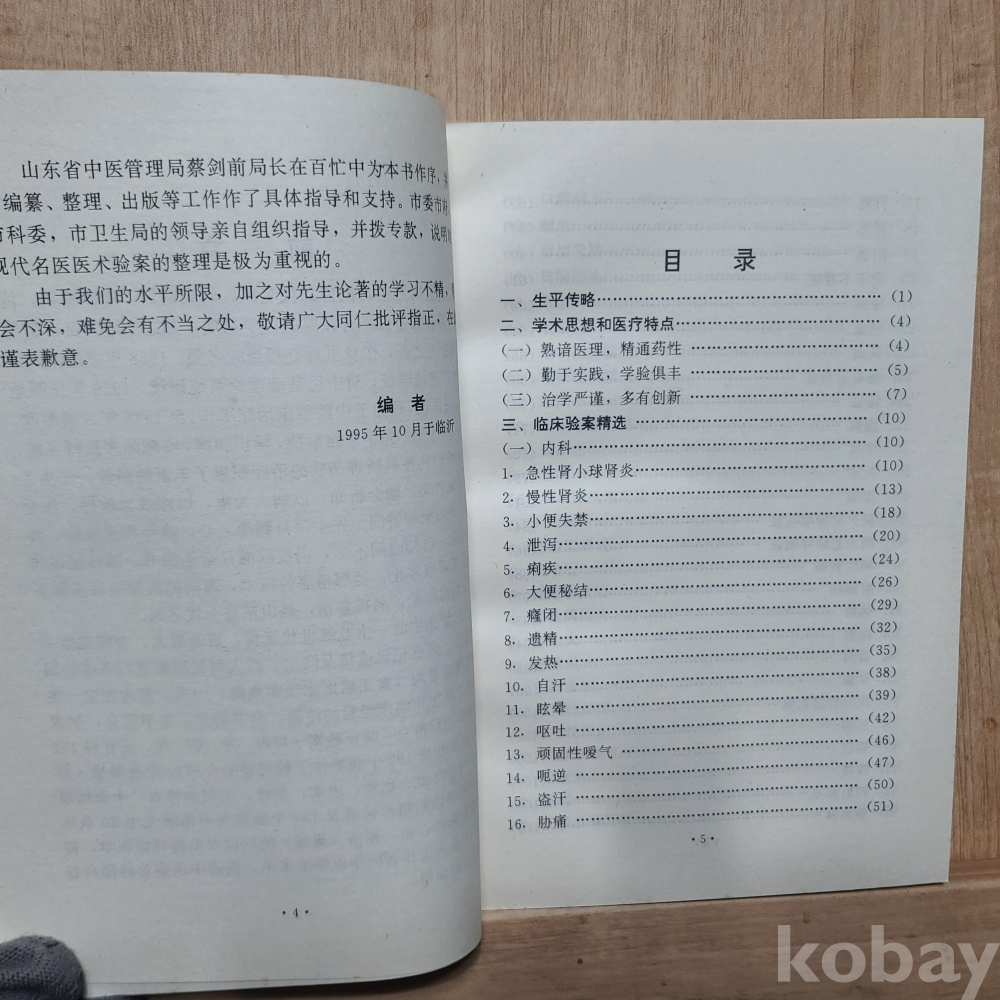 山东省中医管理局蔡剑前局长在百忙中为本书作序，并
编纂、整理、出版等工作作了具体指导和支持。市委市府
市科委，市卫生局的领导亲自组织指导，并拨专款，说明
现代名医医术验案的整理是极为重视的。
由于我们的水平所限，加之对先生论著的学习不精，
会不深，难免会有不当之处，敬请广大同仁批评指正，在
谨表歉意。
编 者
1995年10月于临沂
·4·
目 录
一、生平传略……(1)
二、学术思想和医疗特点……(4)
(一) 熟谙医理，精通药性……(4)
(二) 勤于实践，学验俱丰……(5)
(三) 治学严谨，多有创新……(7)
三、临床验案精选……(10)
(一) 内科……(10)
1. 急性肾小球肾炎……(10)
2. 慢性肾炎……(13)
3. 小便失禁……(18)
4. 泄泻……(20)
5. 痢疾……(24)
6. 大便秘结……(26)
7. 癃闭……(29)
8. 遗精……(32)
9. 发热……(35)
10. 自汗……(38)
11. 眩晕……(39)
12. 呕吐……(42)
13. 顽固性嗳气……(46)
14. 呃逆……(47)
15. 盗汗……(50)
16. 胁痛……(51)
·5·
kobay